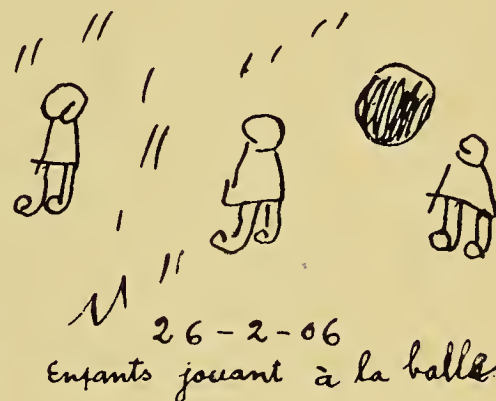 26-2-06
Enfants jouant à la balle